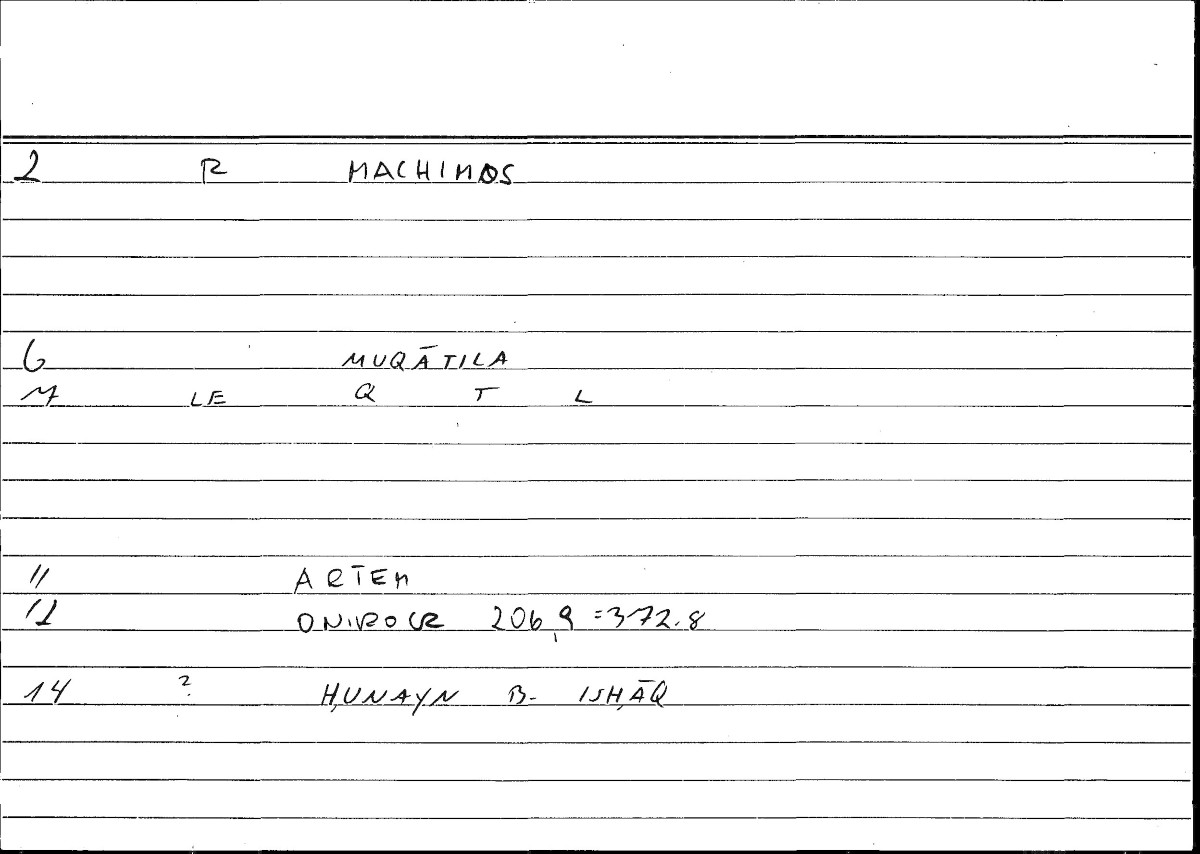 2 R MACHIMOS
6 MUQĀTILA
7 LE Q T L
11 ARTEM
12 ONIROCR 206,9 = 372.8
14 ? ḤUNAYN B. ISḤĀQ